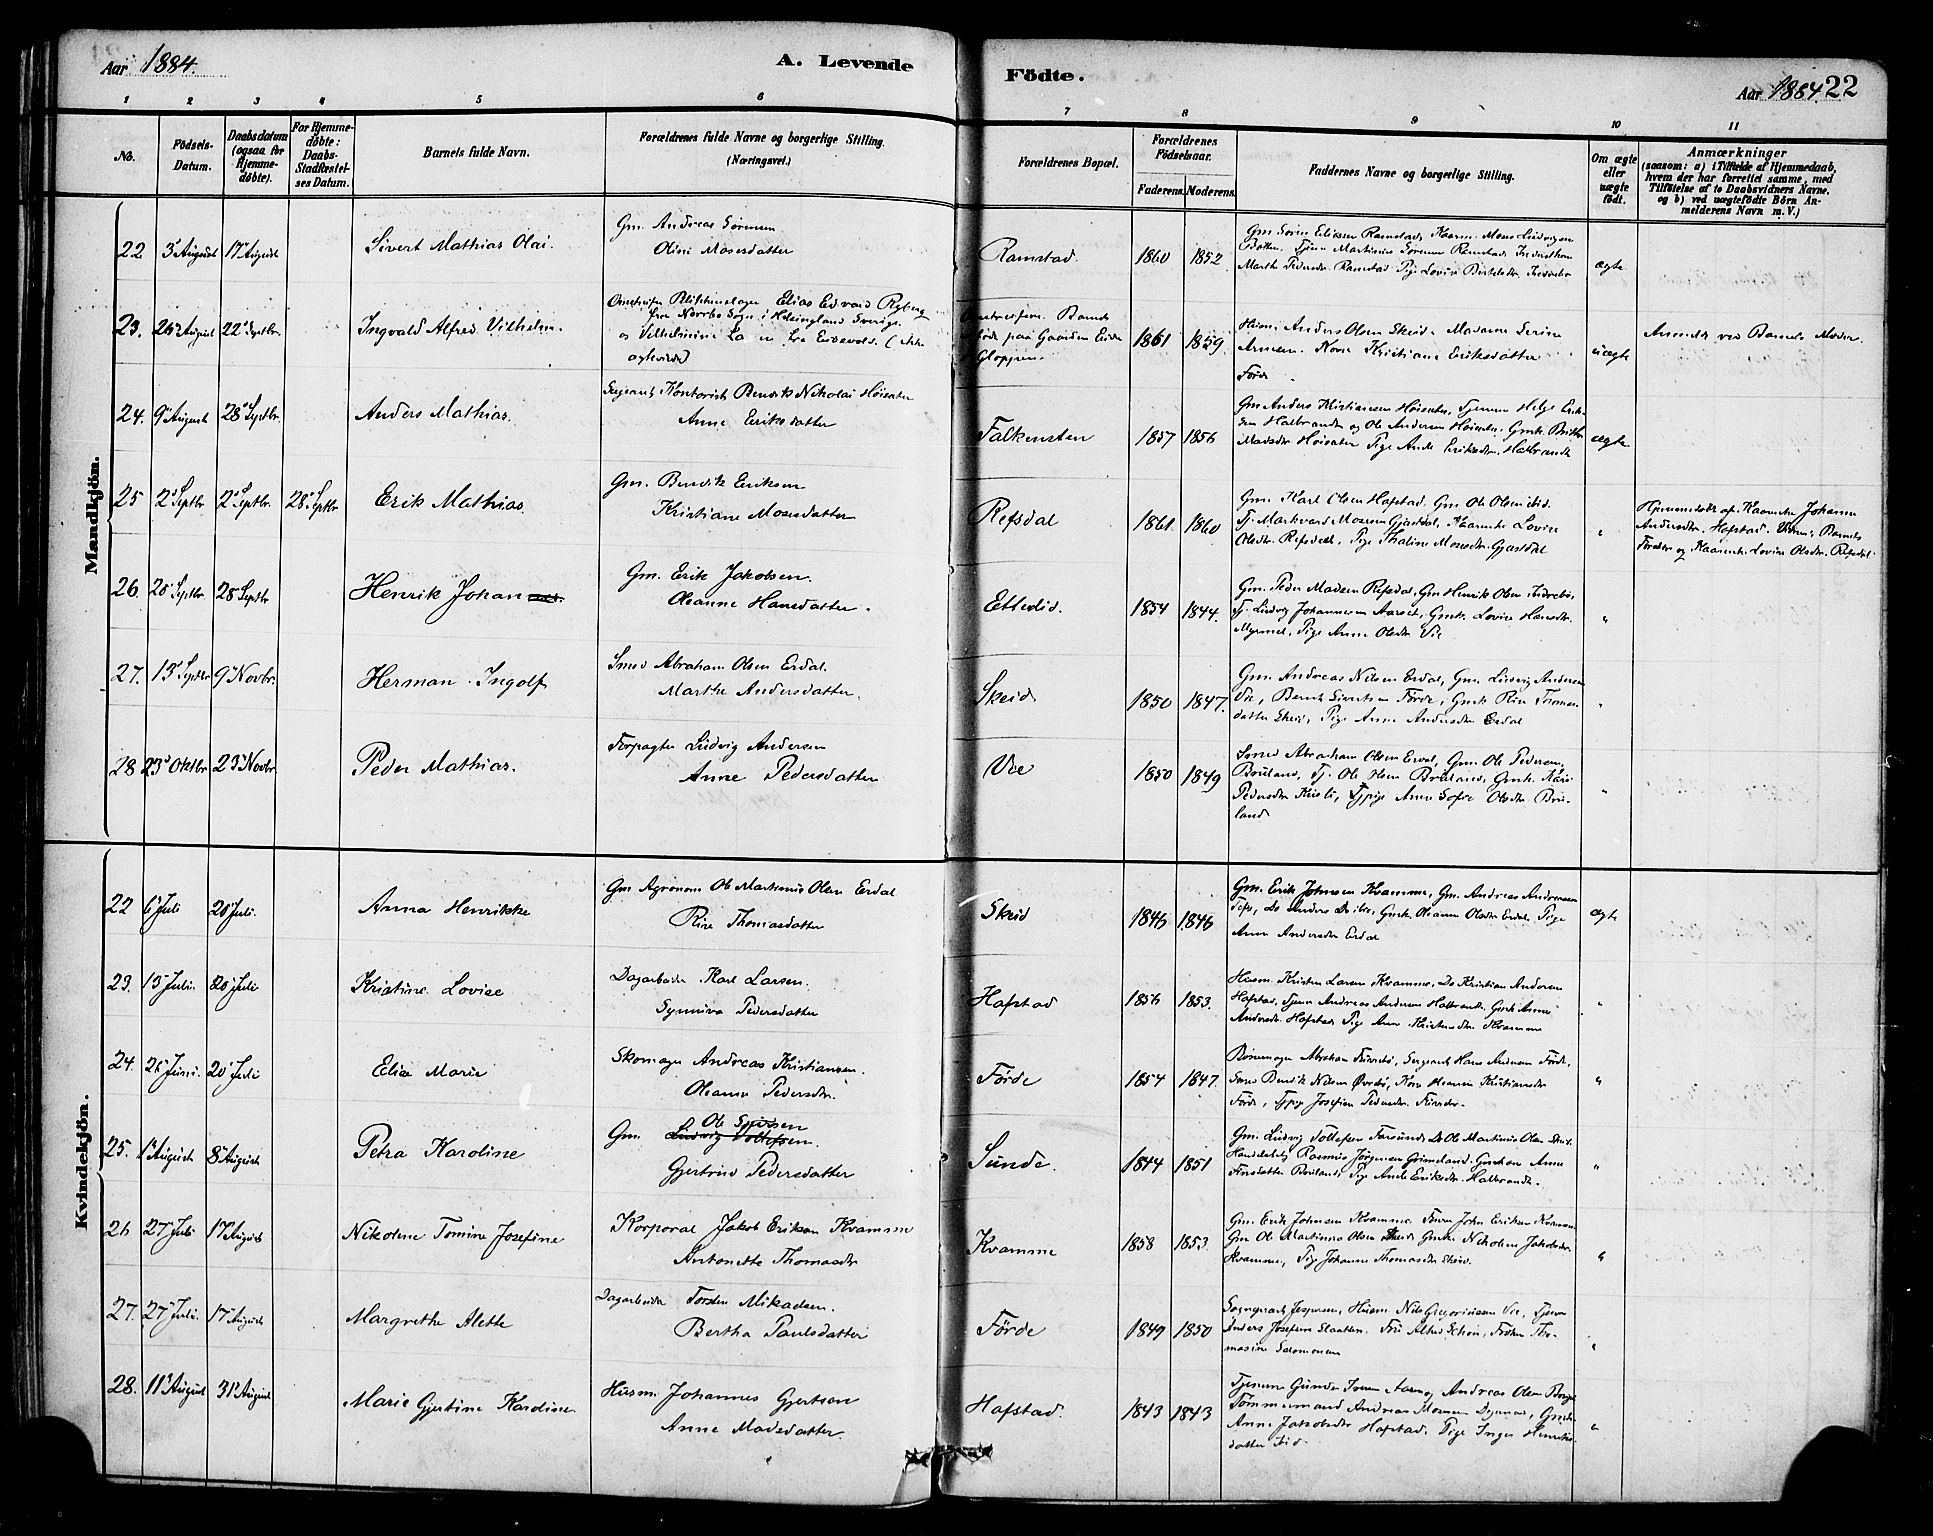 Aar 1884.
A. Levende
Födte.
Aar 1884. 22
1 2 3 4 5 6 7 8 9 10 11
No.
Födsels-Datum.
Daabsdatum (ogsaa for Hjemme-døbte).
For Hjemme-døbte: Daabs-Stadfæstel-ses Datum.
Barnets fulde Navn.
Forældrenes fulde Navne og borgerlige Stilling. (Næringsvei.)
Forældrenes Bopæl.
Forældrenes Födselsaar.
Faderens. Moderens.
Faddernes Navne og borgerlige Stilling.
Om ægte eller uægte födt.
Anmærkninger
(saasom: a) i Tilfælde af Hjemmedaab, hvem der har forrettet samme, med Tilföielse af to Daabsvidners Navne, og b) ved uægtefødte Börn Anmelderens Navn m. V.)
Mandkjön.
22 3 August 17 August Sivert Mathias Olai.
Gm. Andreas Sörensen
Oline Mosesdatter
Ramstad. 1860 1852.
Gm Sören Eliassen Ramstad,
Marthe Pedersdr. Ramstad Pige Lovise
ægte
23. 26 August 22 Septbr. Ingvald Alfred Vilhelm.
Elias Edvard Ryberg
fra Norrbo Sogn i Helsingland Sverige.
og Vilhelmine
paa Gaarden
Gloppen
1861 1859.
Husm. Anders Olsen Skeid. Madame Serine
Kone Kristiane Eriksdatter
Förde.
uægte
Anmeldt ved Barnets Moder.
24. 9 August 28 Septbr. Anders Mathias.
Sergeant, Kontorist Bendik Nikolai Höisæter
Anne Eriksdatter
Falkensten 1857 1856
Gm Anders Kristiansen Höisæter, Tjenere Helge Erik-
sen Halbrandt og Ole Andersen Höisæter, Gmk. Brithe
Madsdr Höisæter Pige Eriksdr. Halbrandt
ægte
25 2 Septbr 2 Septbr. 28 Septbr Erik Mathias.
Gm. Bendik Eriksen
Kristiane Mosesdatter
Refsdal 1861. 1860
Gm. Karl Olsen Hafstad, Gm Ole Olsen ibid.
Tj. Markvard Mosesen Gjæsdal, Kaarmk. Lovise
Olsdr. Refsdal, Pige Thaline Mosesdr. Gjæsdal
"
Hjemmedöbt af Kaarmke Johanne
Andersdr. Hafstad. Vidner: Barnets
Forældre og Kaarmk. Lovise Olsdr. Refsdal.
26. 20 Septbr. 28 Septbr Henrik Johan
Gm. Erik Jakobsen.
Oleanne Hansdatter.
1854 1844.
Gm. Peder Madsen Refsdal, Gm Henrik Olsen
Tj. Ludvig Johannesen Aarset, Gmk. Lovise Hansdr.
Myrmel, Pige Anne Olsdtr Vie
"
27. 13 Septbr 9 Novbr. Herman Ingolf
Smed Abraham Olsen Erdal.
Marthe Andersdatter.
Skeid 1850 1847.
Gm. Andreas Nilsen Erdal, Gm. Ludvig Andersen
Vie, Bernt Sivertsen Förde, Gmk Rise Thomas-
datter Skeid, Pige Anne Andersdtr Erdal
"
28 23 Oktbr 23 Novbr. Peder Mathias.
Forpagter Ludvig Andersen
Anne Pedersdatter
Vie 1850 1849
Smed Abraham Olsen Erdal, Gm Ole Pedersen,
Bruland, Tj. Ole Bruland, Gmk. Kari
Pedersdtr Anne Sofie Olsdtr Bru-
land
"
Kvindekjön.
22 6 Juli 20 Juli. Anna Henrikke
Gm Agronom Ole Martinus Olsen Erdal
Rise Thomasdatter
Skeid 1846 1846
Gm. Erik Johnsen Kvamme, Gm. Andreas Andreassen
Gmk. Oleanne Olsdtr Erdal. Pige
Anne Andersdtr Erdal
ægte
23. 15 Juli. 20 Juli Kristine Lovise
Dagarbeider Karl Larsen.
Synneva Pedersdatter
Hafstad 1856 1853.
Husm. Kristen Larsen Kvamme, Do Kristian Andersen
Hafstad, Tjener Andreas Andersen Halbrandt. Gmk Anne
Andersdr. Hafstad Pige Anne Kristensdtr Kvamme
"
24. 26 Juni. 20 Juli Elise Marie
Skomager Andreas Kristiansen.
Oleanna Pedersdr.
Förde 1854 1847.
Abraham Sergeant Hans Andersen Förde,
Smed Bendik Nilsen Kristiansdtr
Förde, Josefine Pedersdtr.
"
25. 1 August 8 August Petra Karoline
Gm. Ole Sjursen
Ludvig Tollefsen.
Gjertrud Pedersdatter
Sunde. 1844 1851
Gm. Ludvig Tollefsen Farsund Do Ole Martinus Olsen Skeid.
Rasmus Jörgensen Grimeland. Anne
Bruland, Pige Eriksdr. Halbrandt.
"
26 27 Juli 17 August Nikoline Tomine Josefine
Korporal Jakob Eriksen Kvamme
Antonette Thomasdtr
Kvamme 1858 1853.
Gm. Erik Johnsen Kvamme. John Eriksen Kvamme
Gm Ole Martinus Olsen Skeid Gmk. Nikoline Jakobsdr.
Kvamme, Pige Johanne Thomasdtr Skeid.
"
27. 27 Juli. 17 August Margrethe Alette
Dagarbeider Torsten Mikkelsen.
Bertha Paulsdatter
Förde 1849 1850
Sogneprest Jespersen, Husm Nils Gregoriussen Vie, Tjener
Anders Josefsen Slaatten. Fru Schön, Fröken Tho-
masine Salomonsen
"
28. 11 August 31 August Marie Gjertine Karoline
Husm. Johannes Gjertsen
Anne Madsdatter
Hafstad. 1843 1843
Tjenerne Gunder Andreas Olsen
Tömmermand Andreas Gmk.
Anne Jakobsdtr Hafstad. Pige Inger Henriks-
datter
"